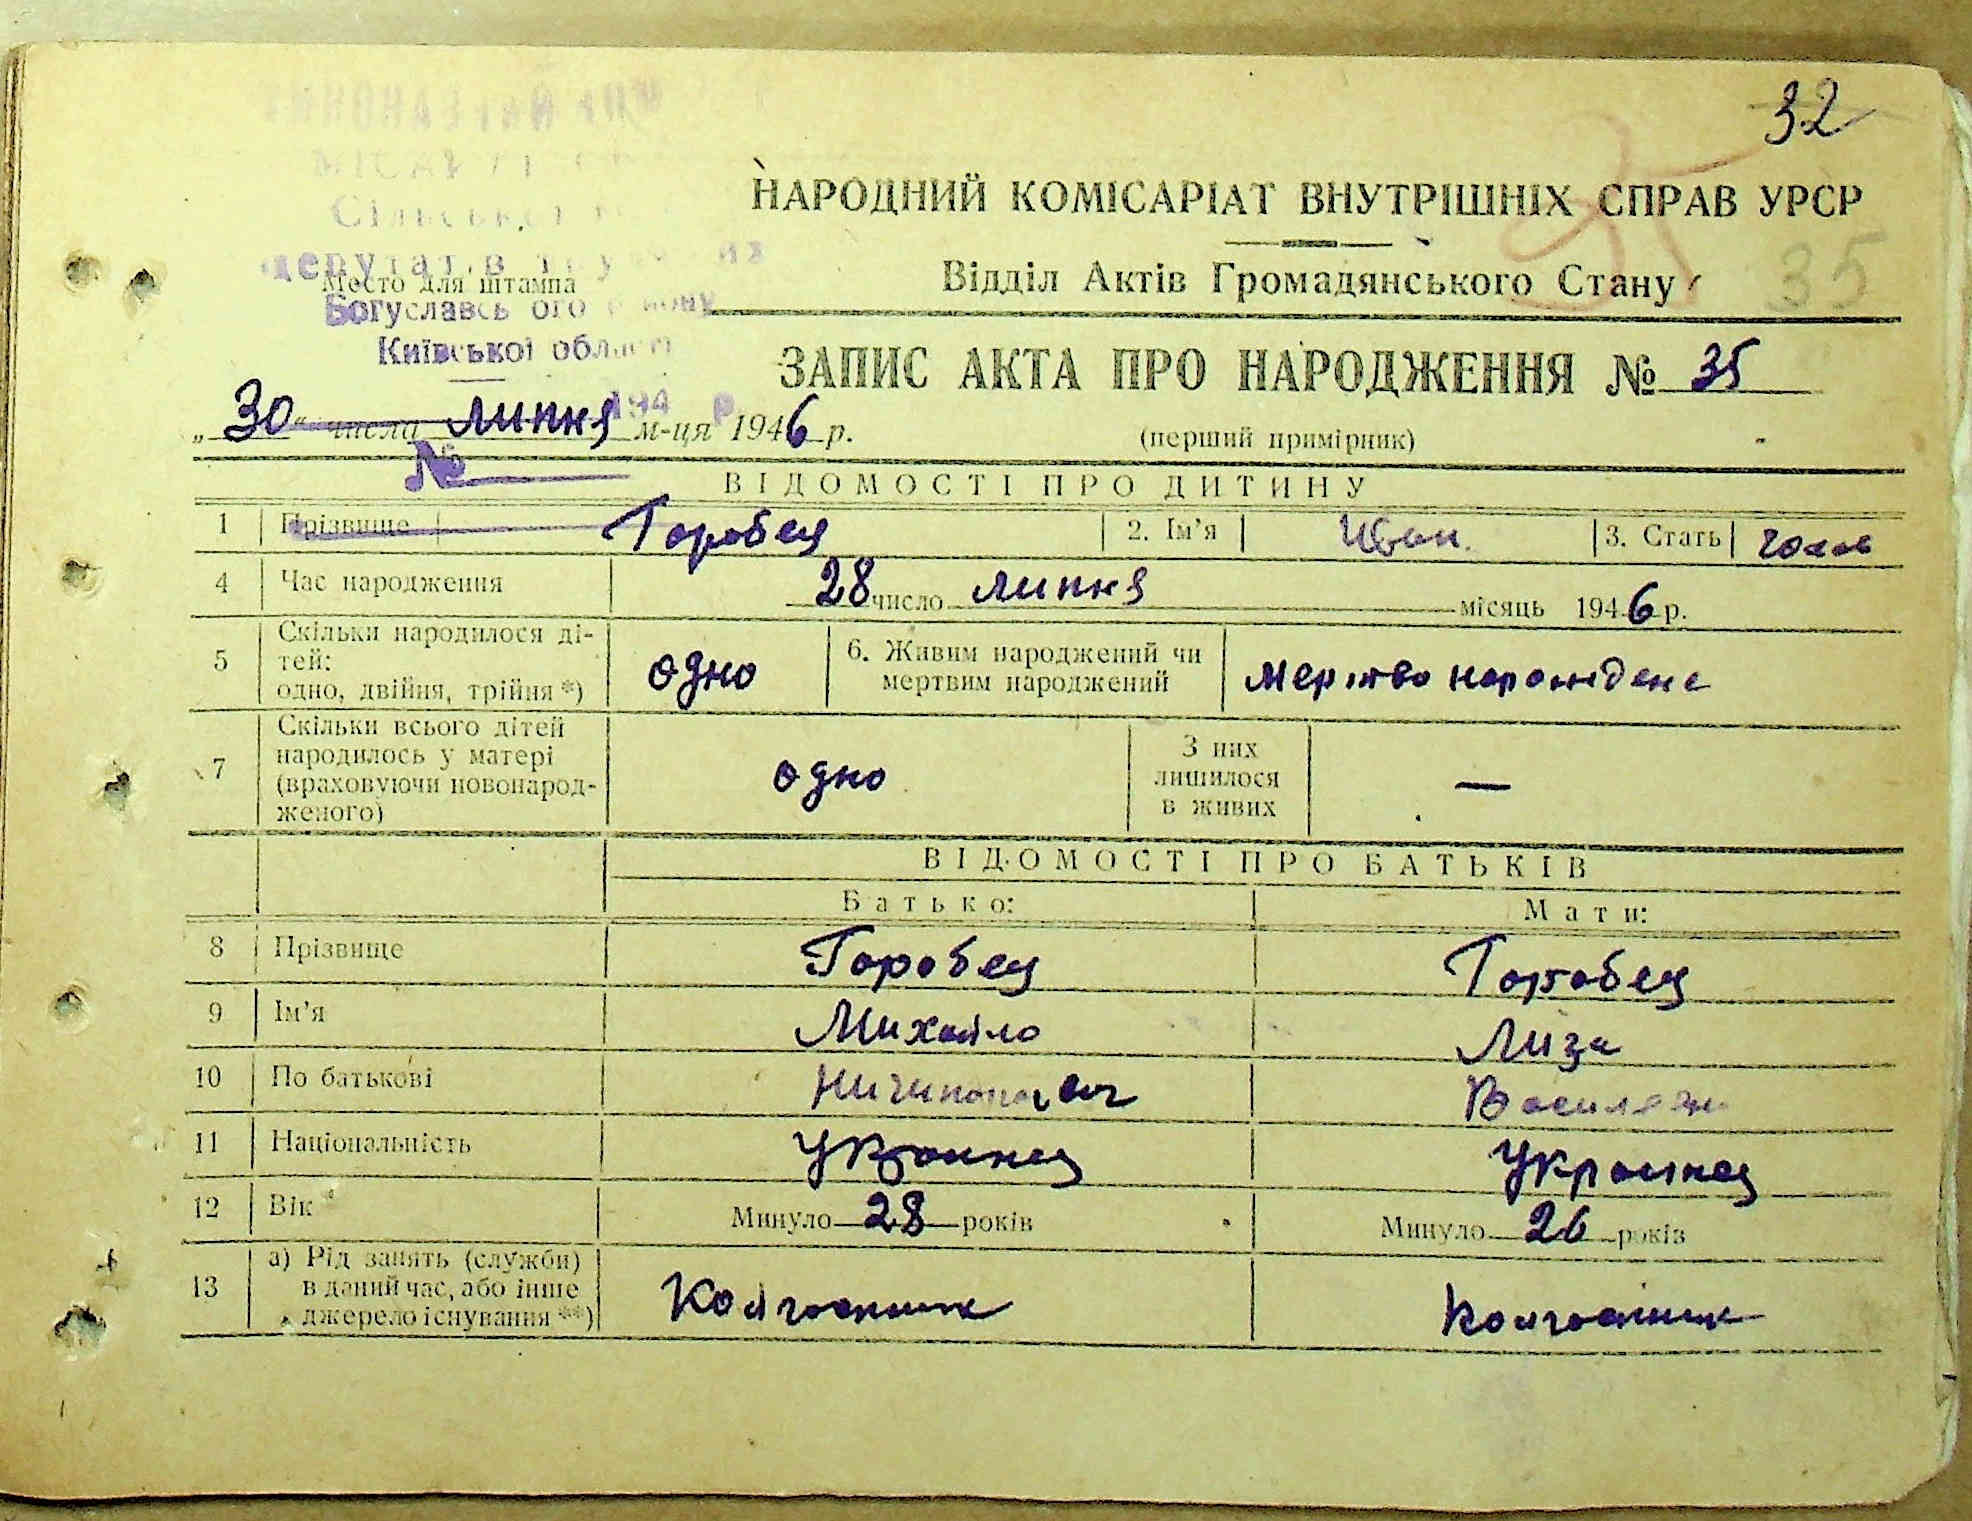 32
НАРОДНИЙ КОМІСАРІАТ ВНУТРІШНІХ СПРАВ УРСР
Відділ Актів Громадянського Стану
35
Сільської
депутатів
Место для штампа
Богуславського району
Київської області
ЗАПИС АКТА ПРО НАРОДЖЕННЯ № 35
„30“ числа липня м-ця 1946 р.
(перший примірник)
194 р.
№
ВІДОМОСТІ ПРО ДИТИНУ
1 Прізвище Горобец 2. Ім'я Иван. 3. Стать
4 Час народження 28 число липня місяць 1946 р.
5 Скільки народилося ді-
тей:
одно, двійня, трійня *) одно
6. Живим народжений чи
мертвим народжений мертво народжене
7 Скільки всього дітей
народилось у матері
(враховуючи новонарод-
женого) одно
З них
лишилося
в живих —
ВІДОМОСТІ ПРО БАТЬКІВ
Батько: Мати:
8 Прізвище Горобец Горобец
9 Ім'я Михайло Лиза
10 По батькові Ничипорович
11 Національність Украинец Украинец
12 Вік Минуло 28 років Минуло 26 років
13 а) Рід занять (служби)
в даний час, або інше
джерело існування **) Колгоспник Колгоспник